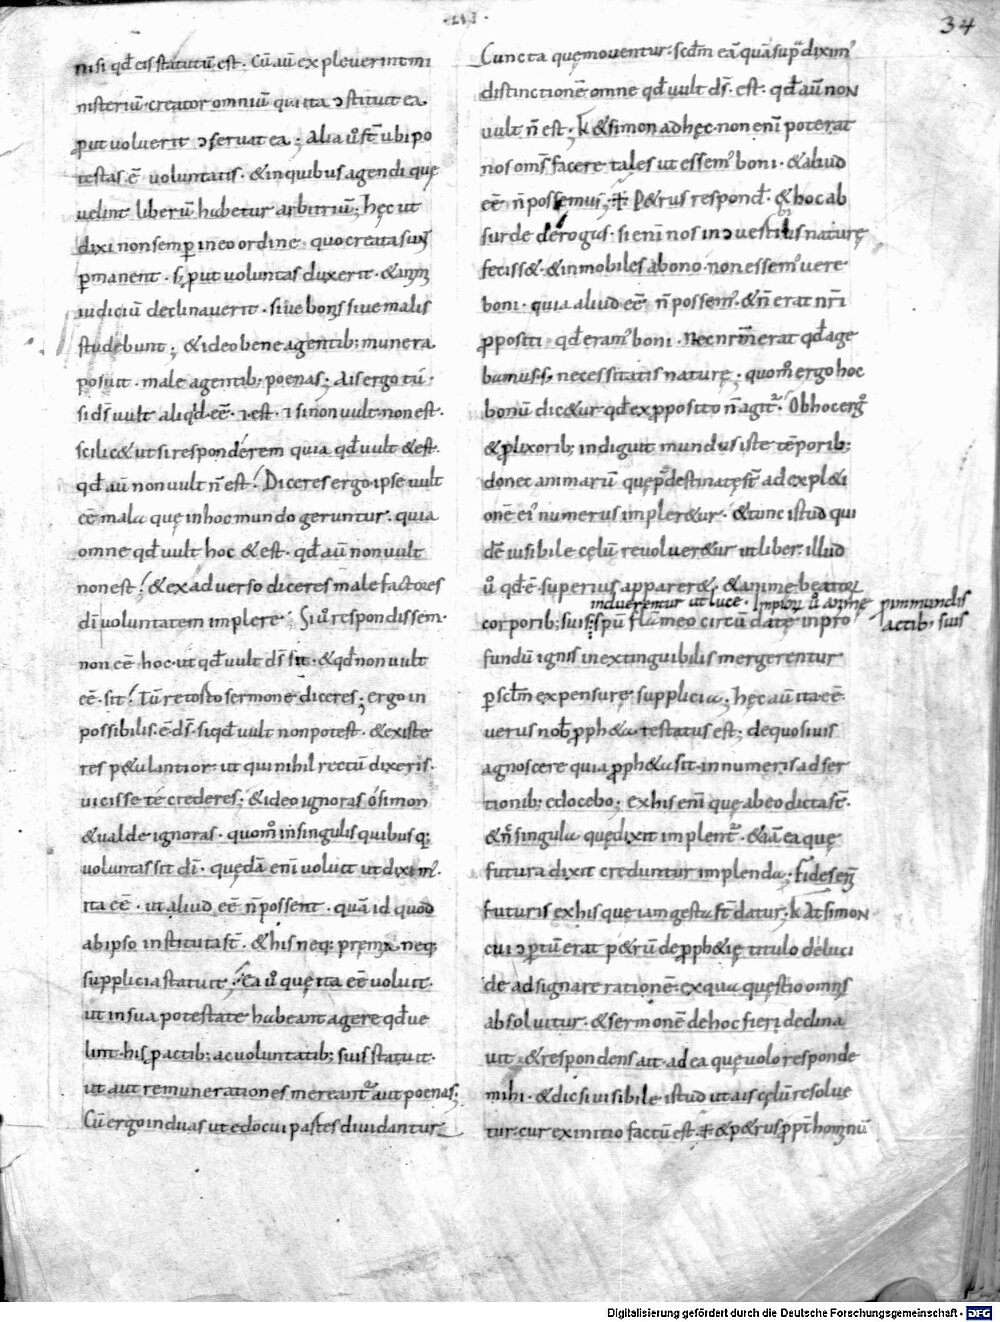 34
nisi qđ eis statutū est. Cū aū expleverint mi
nisteriū. creator omniū qui ita ɔstituit ea
ꝓut voluerit ɔservat ea; Alia ů s̄t ubi po
testas ē voluntatis. & in quibus agendi quę
velint liberū habetur arbitriū; hęc ut
dixi non semꝑ in eo ordine quo creata sunt
ꝑmanent. s; ꝓut voluntas duxerit. & animi
iudiciū declinaverit. sive bonis sive malis
studebunt; & ideo bene agentib; munera
posuit. male agentib; poenas; Ais ergo tu.
si ds̄ vult aliqđ eē. ⁊ est. ⁊ si non vult non est.
scilic& ut si responderem quia qđ vult & est.
qđ aū non vult n̄ est. Diceres ergo ipse vult
eē mala quę in hoc mundo geruntur. quia
omne qđ vult hoc & est. qđ aū non vult
non est. & ex adverso diceres malefactores
dī voluntatem implere. Si ů respondissem.
non eē hoc. ut qđ vult ds̄ sit. & qđ non vult
eē. sit. Tū retosto sermone diceres; ergo in
possibilis. ē ds̄. si qđ vult non potest. & existe
res p&ulantior. ut qui nihil rectū dixeris.
vicisse te crederes; & ideo ignoras o simon
& valde ignoras. quom̊ in singulis quibusq;
voluntas sit dī. quędā enī voluit ut diximꝰ.
ita eē. ut aliud eē n̄ possent. quā id quod
ab ipso instituta s̄t. & his neq; pręmia. neq;
supplicia statuit; Ea ů quę ita eē voluit.
ut in sua potestate habeant agere qđ ve
lint. his ꝓ actib; ac voluntatib; suis statuit.
ut aut remunerationes mereant᷑ aut poenas;
Cū ergo in duas ut edocui partes dividantur
Cuncta quę moventur. scđm eā quā supᵃ diximꝰ
distinctionē omne qđ vult ds̄. est. qđ aū non
vult n̄ est; k & simon ad hęc. non enī poterat
nos oms̄ facere tales ut essemꝰ boni. & aliud
eē n̄ possemus; P&rus respond̄. & hoc ab
surde derogas. si enī nos inɔvestibilis naturę
fecisse&. & inmobiles a bono. non essemꝰ vere
boni. quia aliud eē n̄ possemꝰ. & n̄ erat nr̄i
ꝓpositi. qđ eramꝰ boni. Nec nr̄m erat qđ age
bamus. s; necessitatis naturę. quom̊ ergo hoc
bonū dic&ur qđ ex ꝓposito n̄ agit᷑. Ob hoc ergo
& ꝓlixorib; indiguit mundus iste tēporib;
donec animarū quę p̄destinatę s̄t ad expl&i
onē eiꝰ numerus impler&ur. & tunc istud qui
dē visibile cęlū revolver&ur ut liber. illud
ů qđ ē superius apparer&. & animę beatorū
corporib; suis induerentur ut luce. Impiorū ů animę ꝓ inmundis actib; suis
spū flāmeo circūdatę in pro
fundū ignis inextinguibilis mergerentur
ꝑ sc̄lm expensurę supplicia; hęc aū ita eē.
verus nob̄ ꝓph&a testatus est; de quo si vis
agnoscere quia ꝓph&a sit. innumeris adser
tionib; edocebo; ex his enī quę ab eo dicta s̄t.
& n̄c singula quę dixit implent᷑. & iā ea quę
futura dixit creduntur implenda; Fides enī
futuris ex his que iam gesta s̄t datur; k At simon
cui ɔꝑtū erat p&rū de ꝓph&ię titulo deluci
de adsignare rationē. ex qua quęstio omnis
absolvitur. & sermonē de hoc fieri declina
vit. & respondens ait. ad ea quę volo responde
mihi. & dic si visibile istud ut ais cęlū resolve
tur. cur ex initio factū est. & p&rus ꝓpt̄ hominū